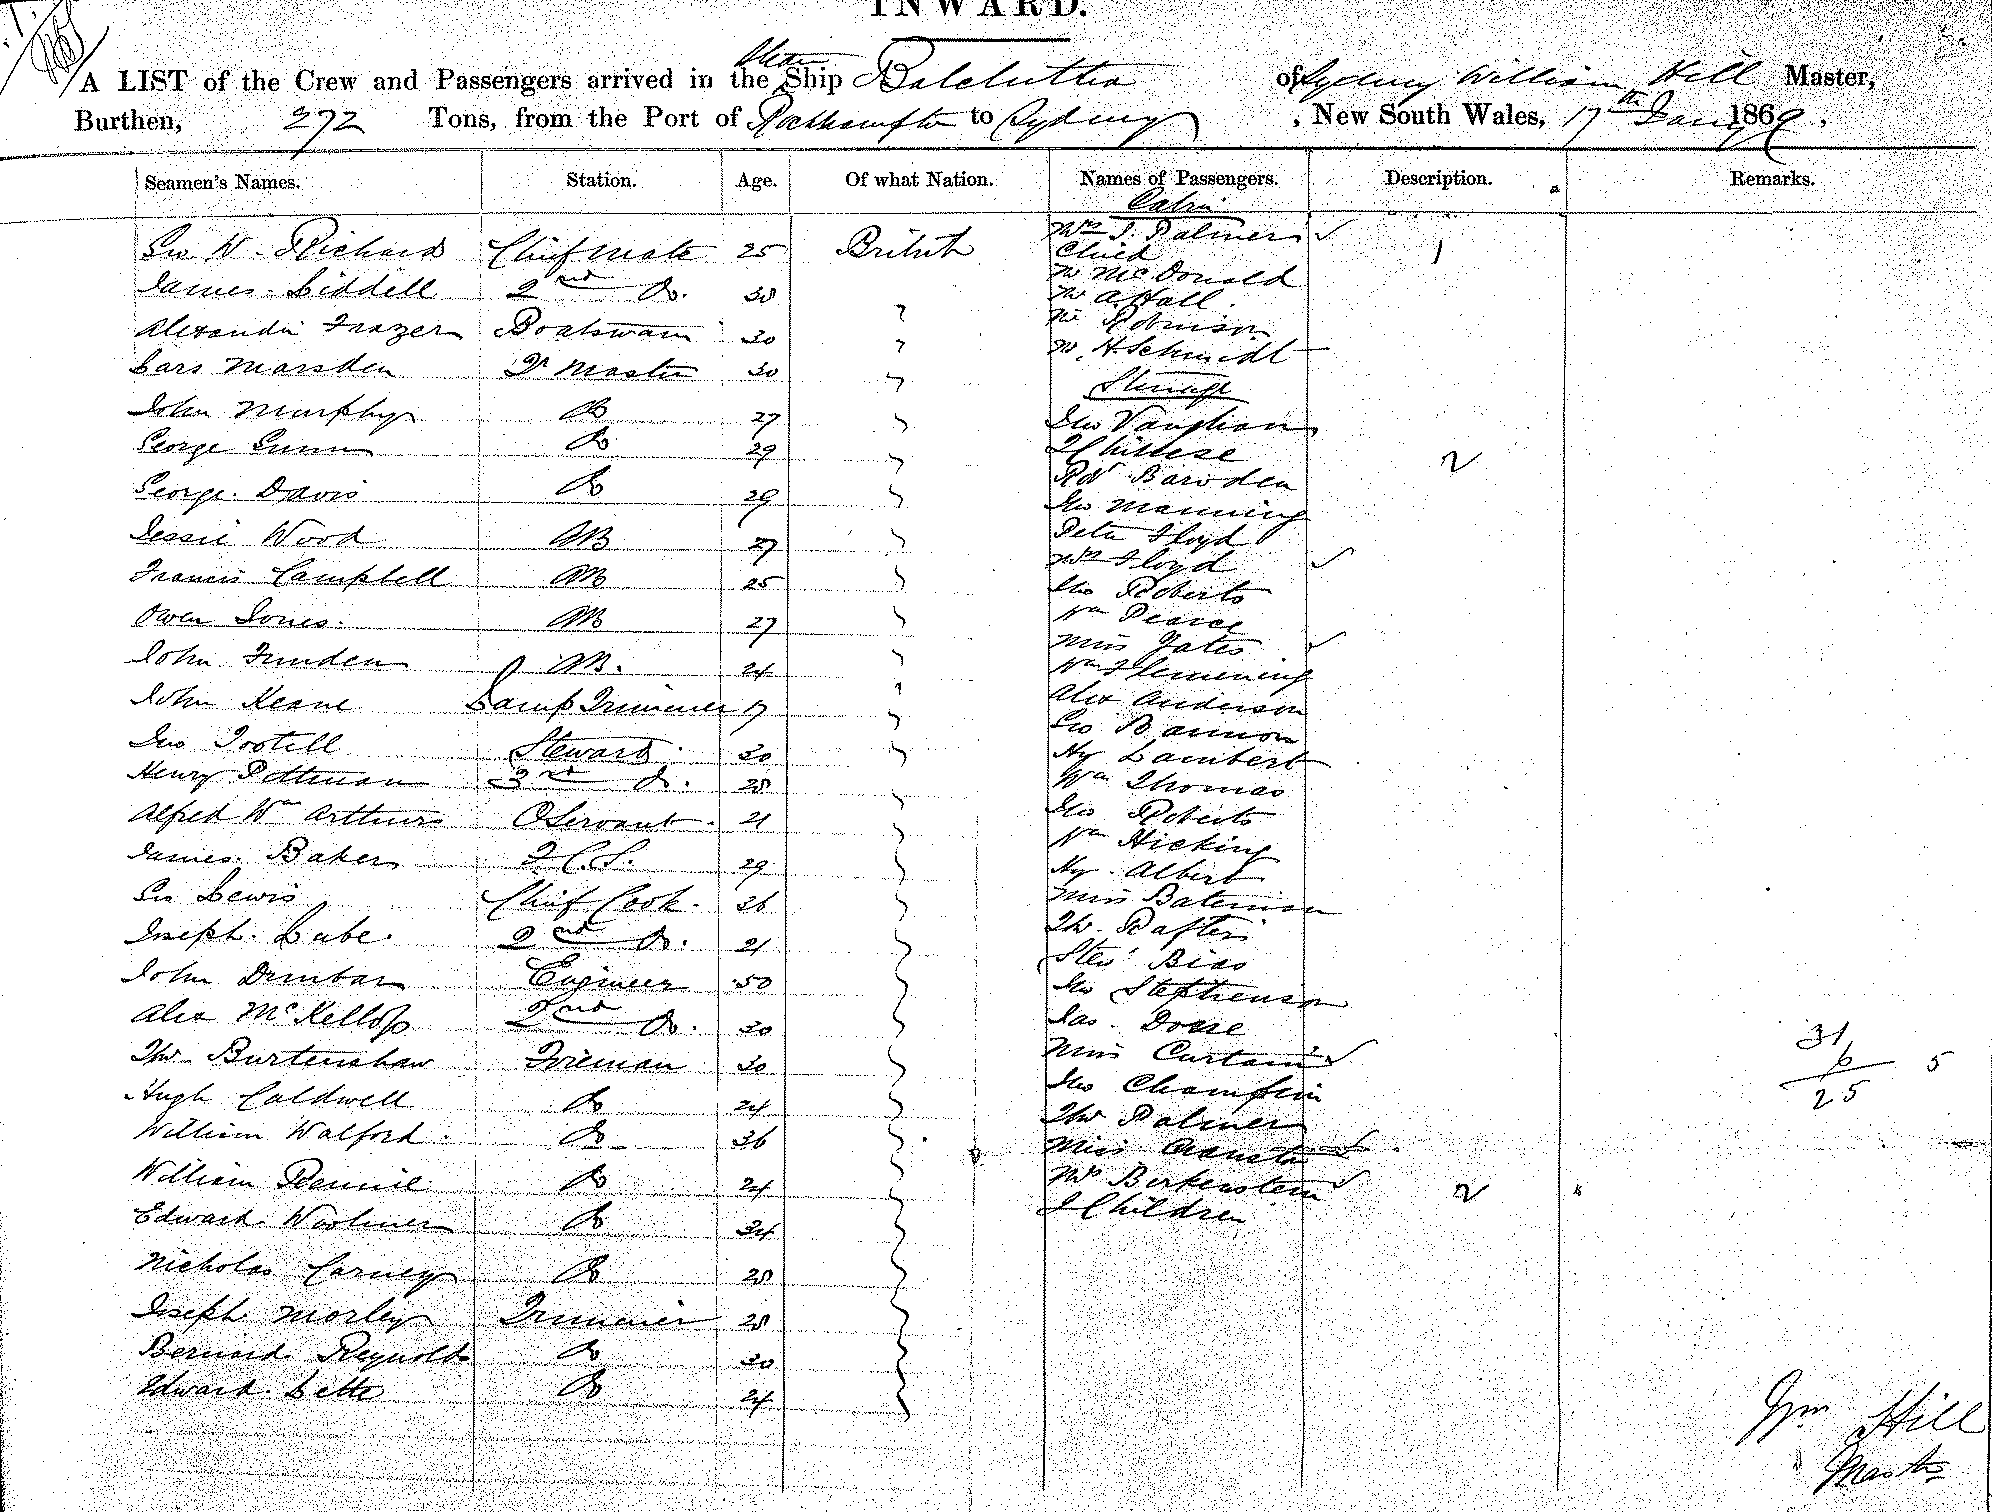 INWARD.
A LIST of the Crew and Passengers arrived in the Steam Ship Balclutha of Sydney William Hill Master,
Burthen, 272 Tons, from the Port of Rockhampton to Sydney, New South Wales, 17th Jany 186
Seamen's Names. Station. Age. Of what Nation. Names of Passengers. Description. Remarks.
Cabin
Geo W. Richard Chief Mate 25 British Mrs J. Palmer ✓ 1
Child
James Liddell 2nd Do. 38 " Mr McDonald
Mr A. Hall
Alexander Frazer Boatswain 30 " Mr Robinson
Lars Marsden Qr Master 30 " Mr H. Schmidt
Steerage
John Murphy Do 27 " Jno Vaughan
George Gunn Do 29 " 2 Chinese 2
Rd Bawden
George Davis Do 29 " Jno Manning
Jessie Wood AB 27 " Peter Floyd
Mrs Floyd ✓
Francis Campbell AB 25 " Jno Roberts
Owen Jones AB 27 " Wm Pearce
Miss Yates ✓
John AB. 24 " Wm Flemming
John Keane Lamp Trimmer 17 " Alex Anderson
Geo Bannon
Jno Tootill Steward 30 " Hy Lambert
Henry Pottman 3rd Do. 28 " Wm Thomas
Alfred Wm Arthurs Servant 21 " Jno Roberts
Wm Hicking
James Baker F.C.S. 29 " Hy Albert
Geo Lewis Chief Cook 26 " Miss Bateman
Joseph Labe 2nd Do. 21 " Th.
Bias
John Dunbar Engineer 50 " Jno Stephenson
Alex McKellop 2nd Do. 30 " Jas
Thos Burtenshaw Fireman 30 " Miss Curtain ✓ 31
6 5
25
Hugh Caldwell Do 24 " Jno Champlin
William Walford Do 36 " Thos Palmer
Miss ✓
William Rennie Do 24 " Mrs Berkenstein ✓ 2
Edward Do 34 " 2 Children
Nicholas Carney Do 28 "
Joseph Morley Trimmer 28 "
Bernard Reynolds Do 30 "
Edward Do 24 "
Wm Hill
Master